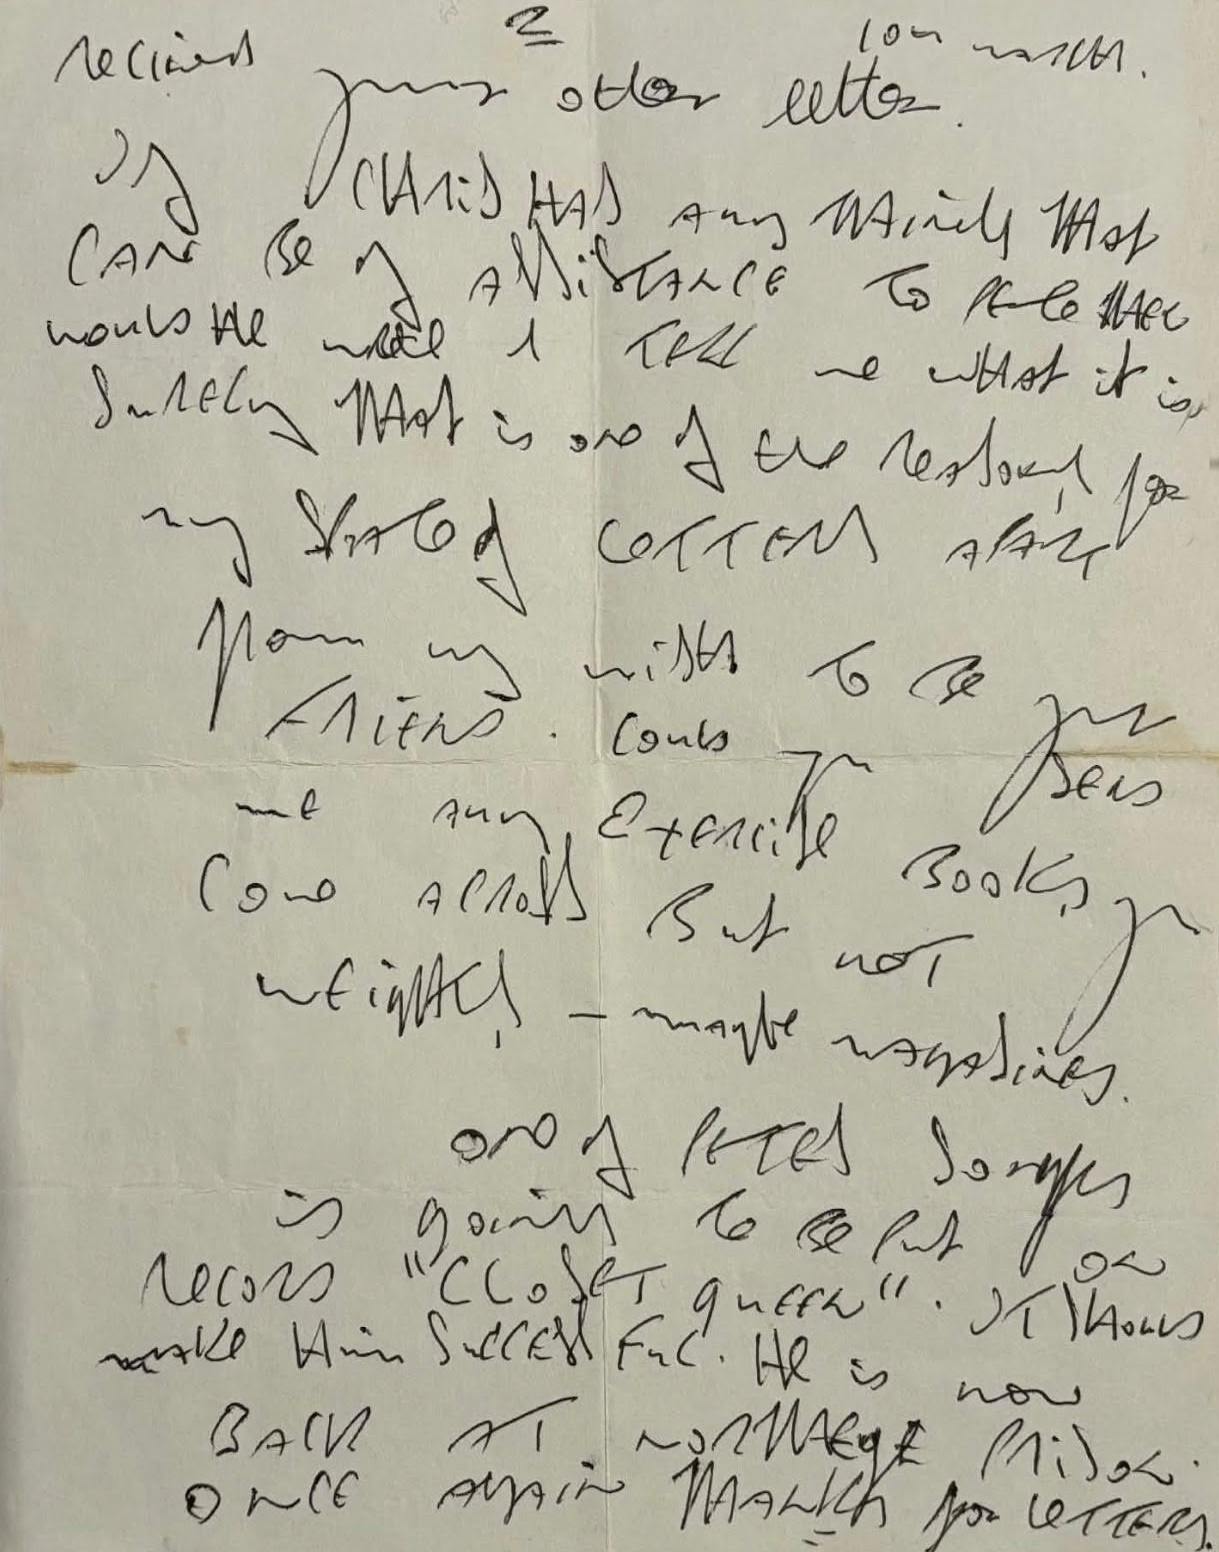 2
10th march.
recieved your other letter.
If Chris has any thinks that
can be of assistance to Pete then
would he write & tell me what it is,
Surely that is one of the reasons, for
my spate of letters apart
from my wish to be your
friend. Could you send
me any exercise books, you
come across but not
weights, – maybe magazines.
one of Petes songs
is going to be put on
record "Closet Queen". It should
make him successful. He is now
back at Northeye Prison.
once again thanks for letters.